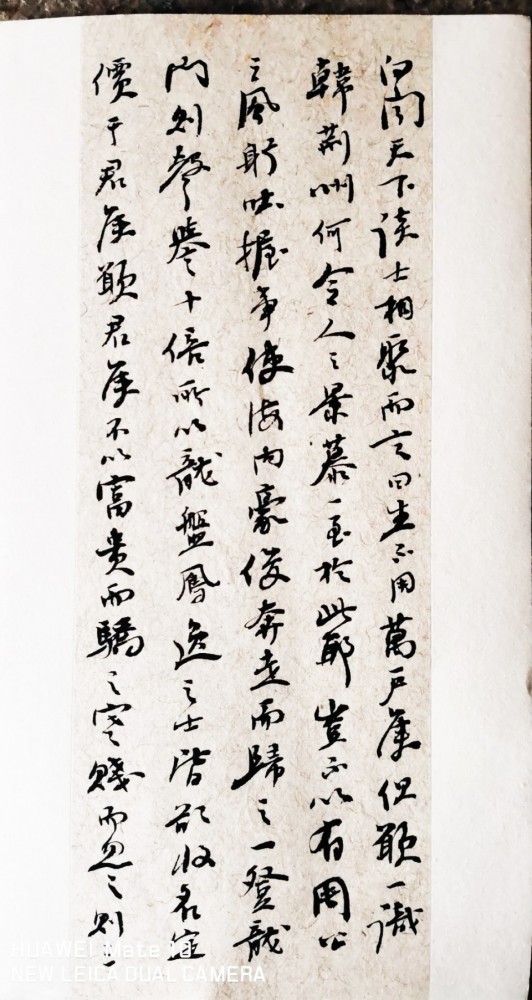 白闻天下谈士相聚而言曰生不用萬戸侯但願一識
韓荆州何令人之景慕一至於此耶豈不以有周公
之風躬吐握之事使海内豪俊奔走而歸之一登龍
門則聲譽十倍所以龍盤鳳逸之士皆欲收名定
價于君侯願君侯不以富贵而驕之寒賤而忽之則
HUAWEI Mate 10
NEW LEICA DUAL CAMERA